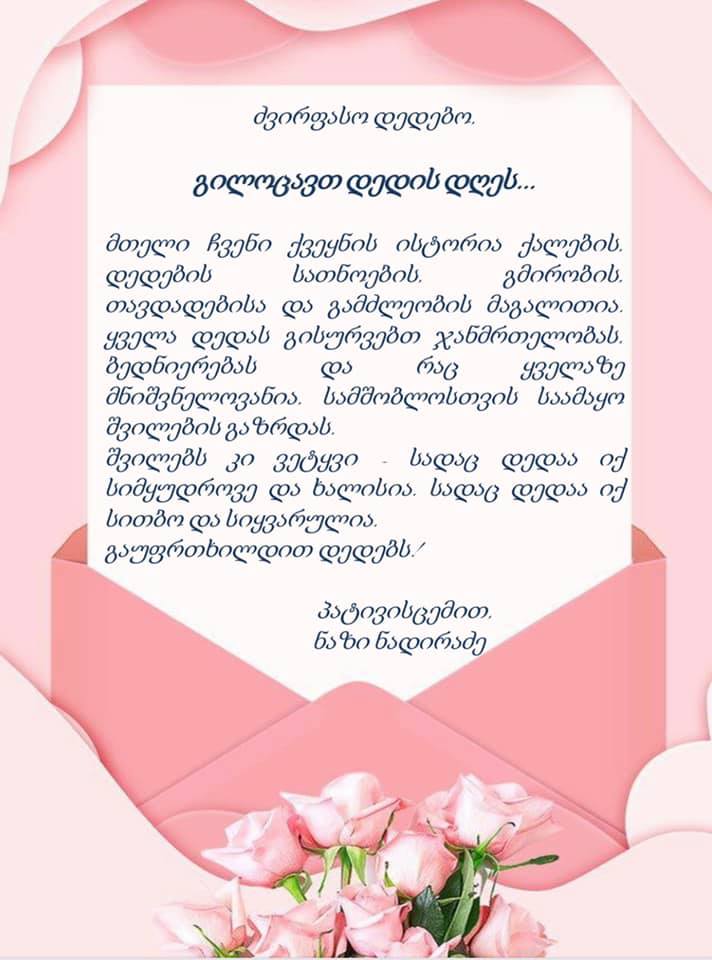 ძვირფასო დედებო,
გილოცავთ დედის დღეს...
მთელი ჩვენი ქვეყნის ისტორია ქალების,
დედების სათნოების, გმირობის,
თავდადებისა და გამძლეობის მაგალითია.
ყველა დედას გისურვებთ ჯანმრთელობას,
ბედნიერებას და რაც ყველაზე
მნიშვნელოვანია, სამშობლოსთვის საამაყო
შვილების გაზრდას.
შვილებს კი ვეტყვი - სადაც დედაა იქ
სიმყუდროვე და ხალისია. სადაც დედაა იქ
სითბო და სიყვარულია.
გაუფრთხილდით დედებს!
პატივისცემით,
ნაზი ნადირაძე